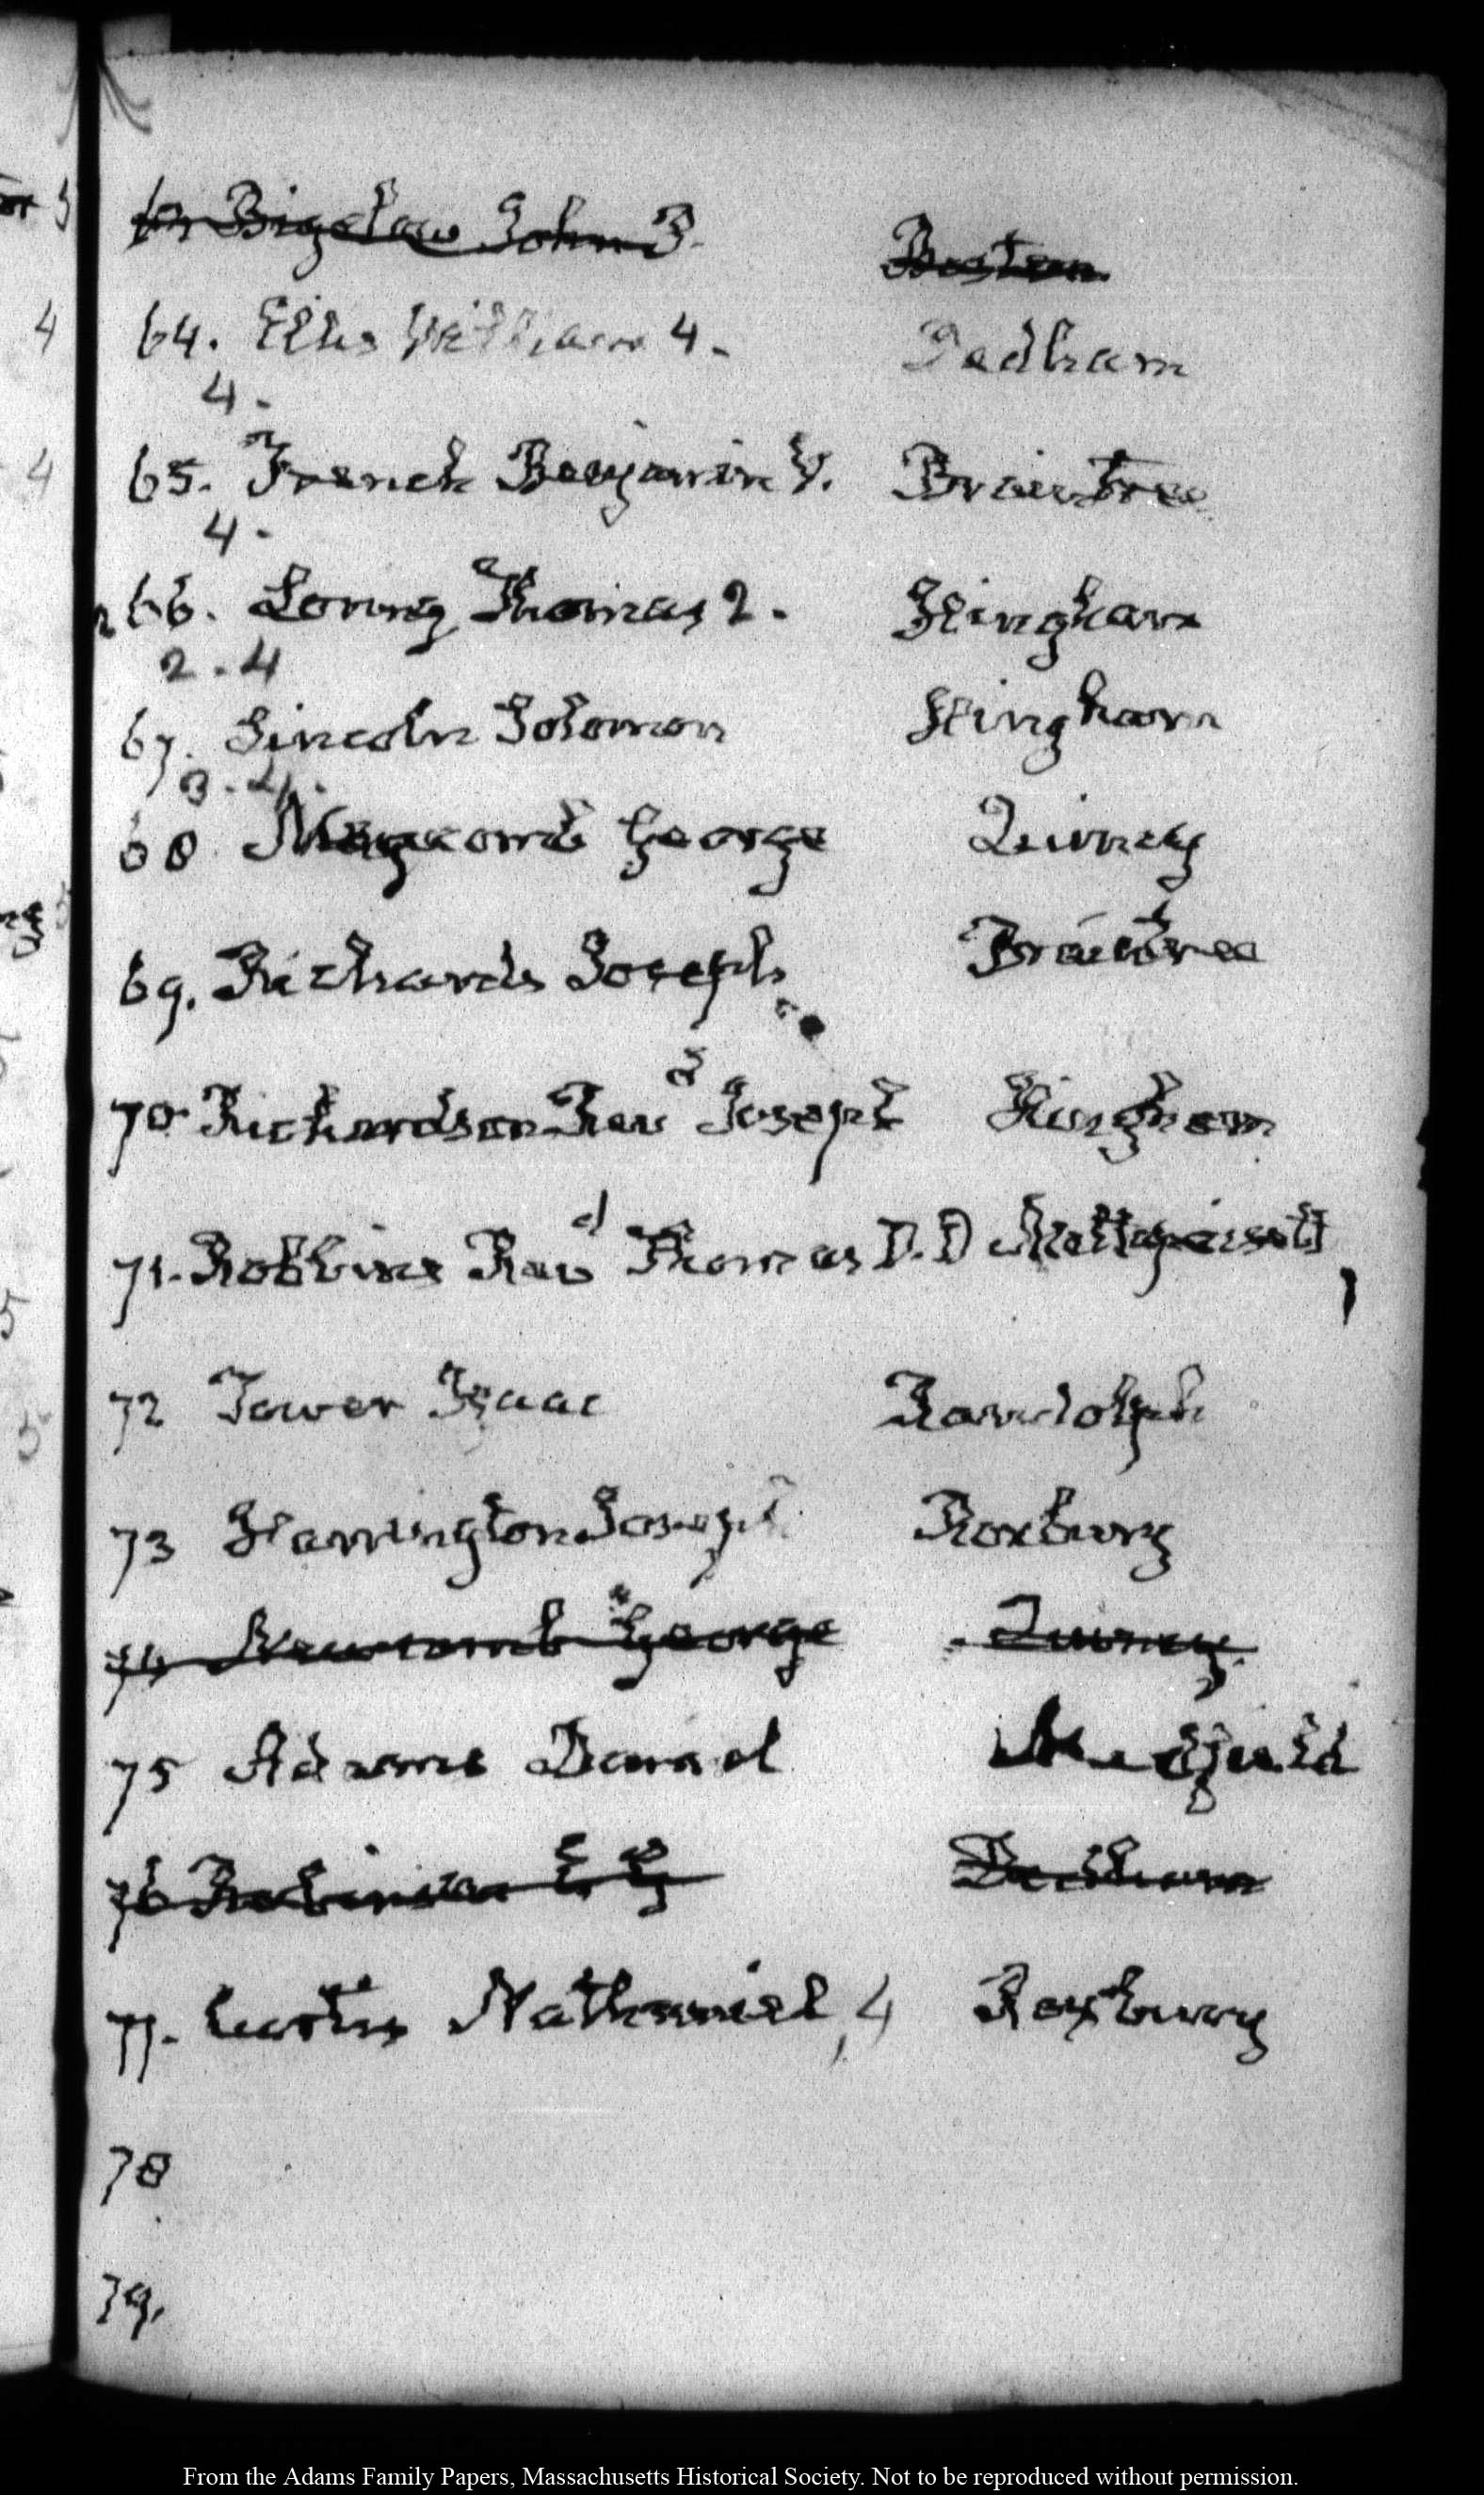 63 Bigelow John P. Boston
64. Ellis William 4. Dedham
4.
65. French Benjamin V. Braintree
4.
66. Loring Thomas 2. Hingham
2. 4
67. Lincoln Solomon Hingham
3. 4.
68 George Quincy
69. Richards Joseph Braintree
70 Richardson Revd Joseph Hingham
71. Robbins Revd Thomas D.D Mattapoisett
72 Tower Isaac Randolph
73 Harrington Joseph Roxbury
74 Newcomb George Quincy.
75 Adams Daniel Medfield
76 Robinson Dedham
77. Curtis Nathaniel, 4 Roxbury
78
79.
From the Adams Family Papers, Massachusetts Historical Society. Not to be reproduced without permission.